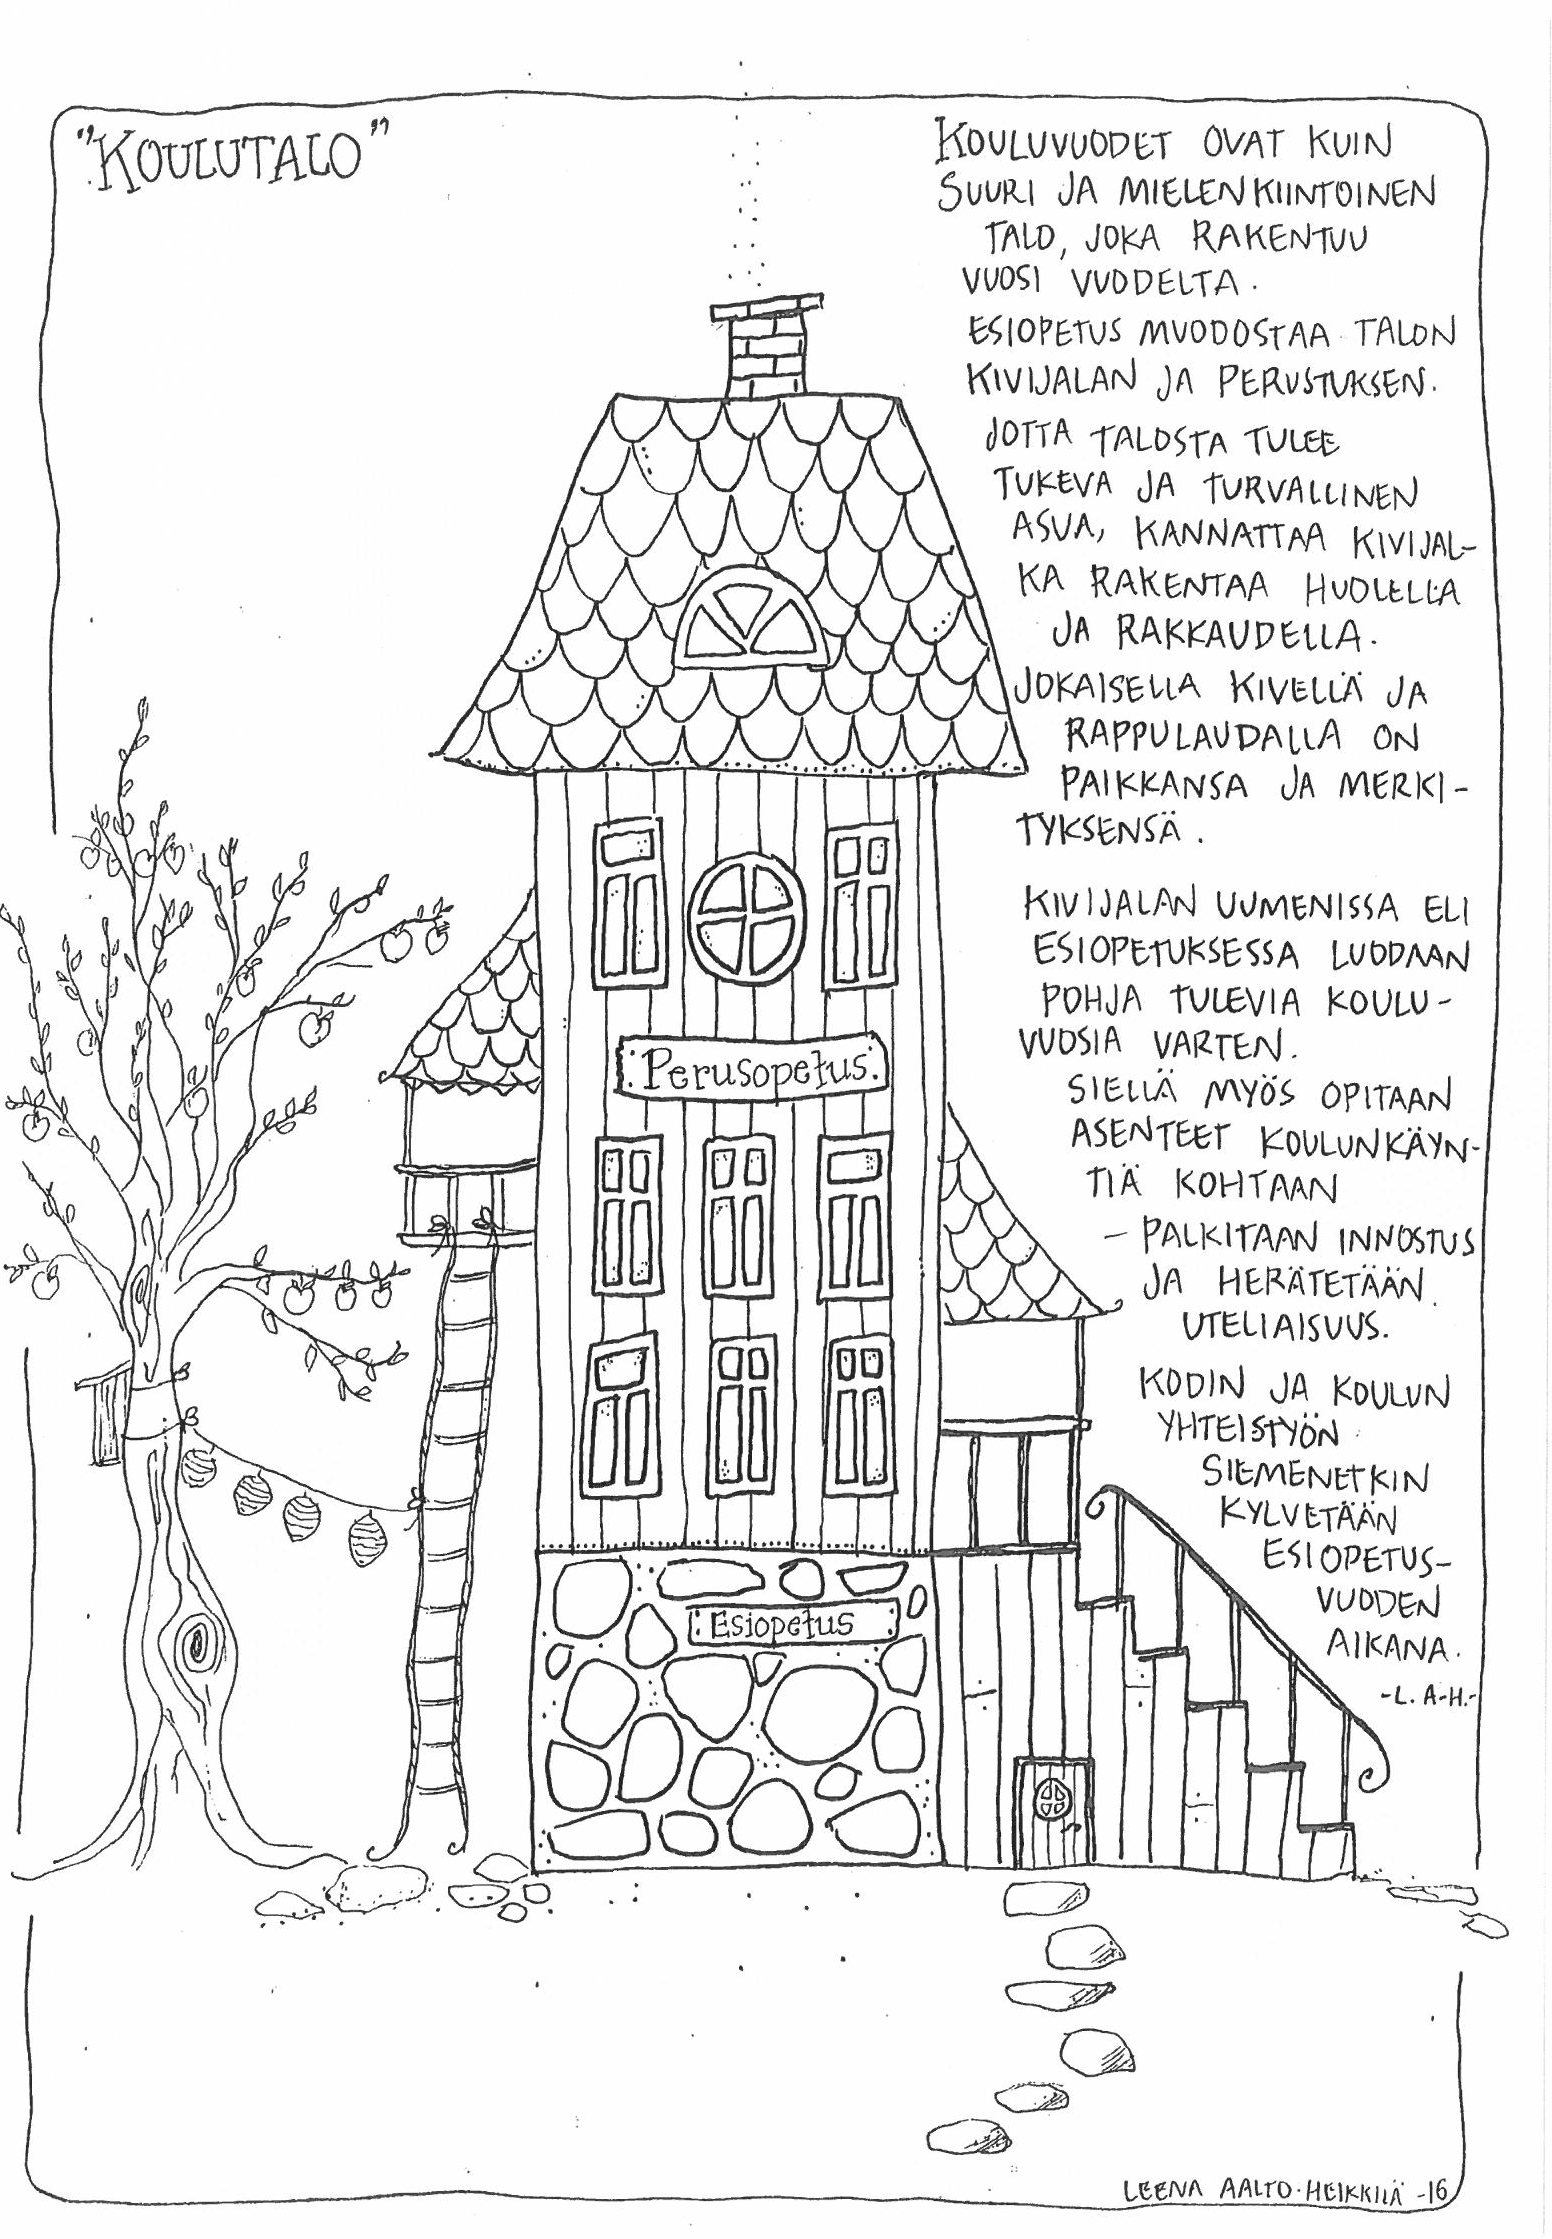 "KOULUTALO"
KOULUVUODET OVAT KUIN
SUURI JA MIELENKIINTOINEN
TALO, JOKA RAKENTUU
VUOSI VUODELTA.
ESIOPETUS MUODOSTAA TALON
KIVIJALAN JA PERUSTUKSEN.
JOTTA TALOSTA TULEE
TUKEVA JA TURVALLINEN
ASUA, KANNATTAA KIVIJAL-
KA RAKENTAA HUOLELLA
JA RAKKAUDELLA.
JOKAISELLA KIVELLÄ JA
RAPPULAUDALLA ON
PAIKKANSA JA MERKI-
TYKSENSÄ.
KIVIJALAN UUMENISSA ELI
ESIOPETUKSESSA LUODAAN
POHJA TULEVIA KOULU-
VUOSIA VARTEN.
SIELLÄ MYÖS OPITAAN
ASENTEET KOULUNKÄYN-
TIÄ KOHTAAN
- PALKITAAN INNOSTUS
JA HERÄTETÄÄN
UTELIAISUUS.
KODIN JA KOULUN
YHTEISTYÖN
SIEMENETKIN
KYLVETÄÄN
ESIOPETUS-
VUODEN
AIKANA.
-L. A-H.-
Perusopetus.
Esiopetus
LEENA AALTO-HEIKKILÄ -16